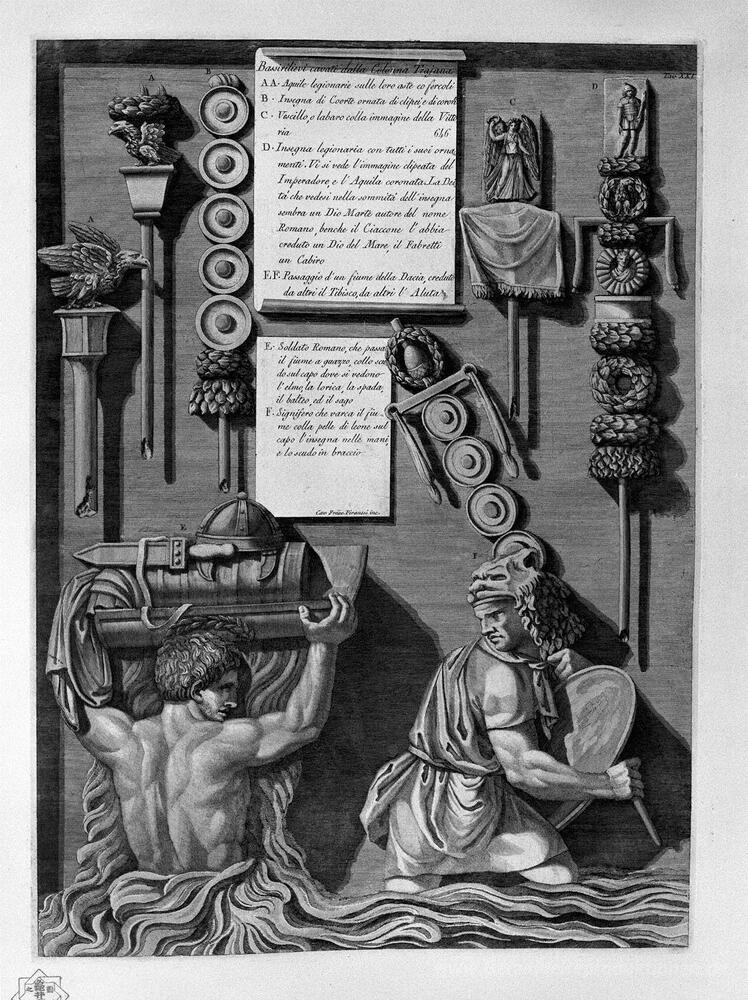 Bassirilievi cavati dalla Colonna Trajana
A A. Aquile legionarie sulle loro aste co fercoli
B. Insegna di Coorte ornata di clipei, e di coron
C. Vessillo, o labaro colla immagine della Vitto
ria 646
D. Insegna legionaria con tutti i suoi orna
menti. Vi si vede l'immagine clipeata del
Imperadore, e l'Aquila coronata. La Dei
tà che vedesi nella sommità dell'insegna
sembra un Dio Marte autore del nome
Romano, benche il Ciaccone l'abbia
creduto un Dio del Mare, il Fabretti
un Cabiro
E F. Passaggio d'un fiume della Dacia, creduto
da altri il Tibisco, da altri l'Aluta
E. Soldato Romano, che passa
il fiume a guazzo, collo scu
do sul capo dove si vedono
l'elmo, la lorica, la spada,
il balteo, ed il sago
F. Signifero che varca il fiu
me colla pelle di leone sul
capo l'insegna nelle mani,
e lo scudo in braccio
Cav. Fran. Piranesi inc.
Tav. XXI.
A
B
A
C
D
E
F